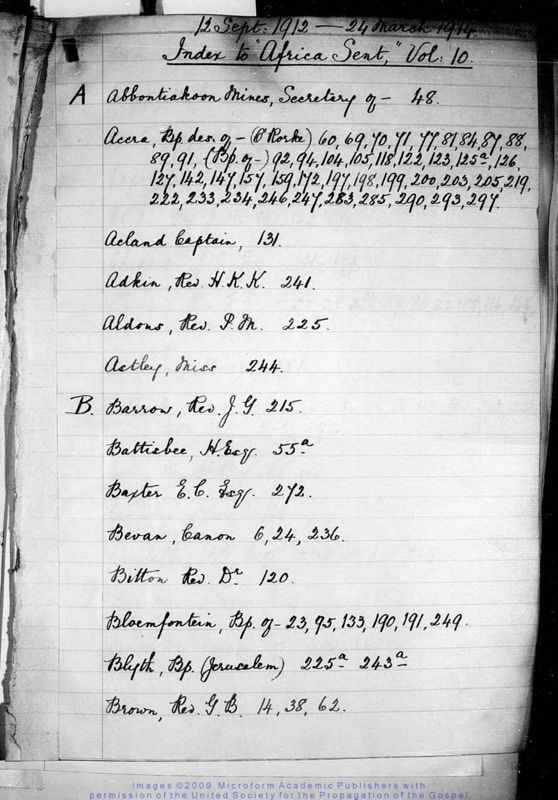 12 Sept: 1912 — 24 March 1914.
Index to "Africa Sent," Vol: 10.
A Abbontiakoon Mines, Secretary of — 48.
Accra, Bp. des. of — (O'Rorke) 60, 69, 70, 71, 77, 81, 84, 87, 88,
89, 91, (Bp. of —) 92, 94, 104, 105, 118, 122, 123, 125ª, 126,
127, 142, 147, 157, 159, 172, 197, 198, 199, 200, 203, 205, 219,
222, 233, 234, 246, 247, 283, 285, 290, 293, 297.
Acland Captain, 131.
Adkin, Rev. H. K. K. 241.
Aldous, Rev. P. M. 225.
Astley, Miss 244.
B. Barrow, Rev. J. G. 215.
Battisbee, H. Esq. 55ª
Baxter E. C. Esq. 272.
Bevan, Canon 6, 24, 236.
Bitton Rev. Dr 120.
Bloemfontein, Bp. of — 23, 95, 133, 190, 191, 249.
Blyth, Bp. (Jerusalem) 225ª 243ª
Brown, Rev. G. B. 14, 38, 62.
Images ©2009 Microform Academic Publishers with
permission of the United Society for the Propagation of the Gospel